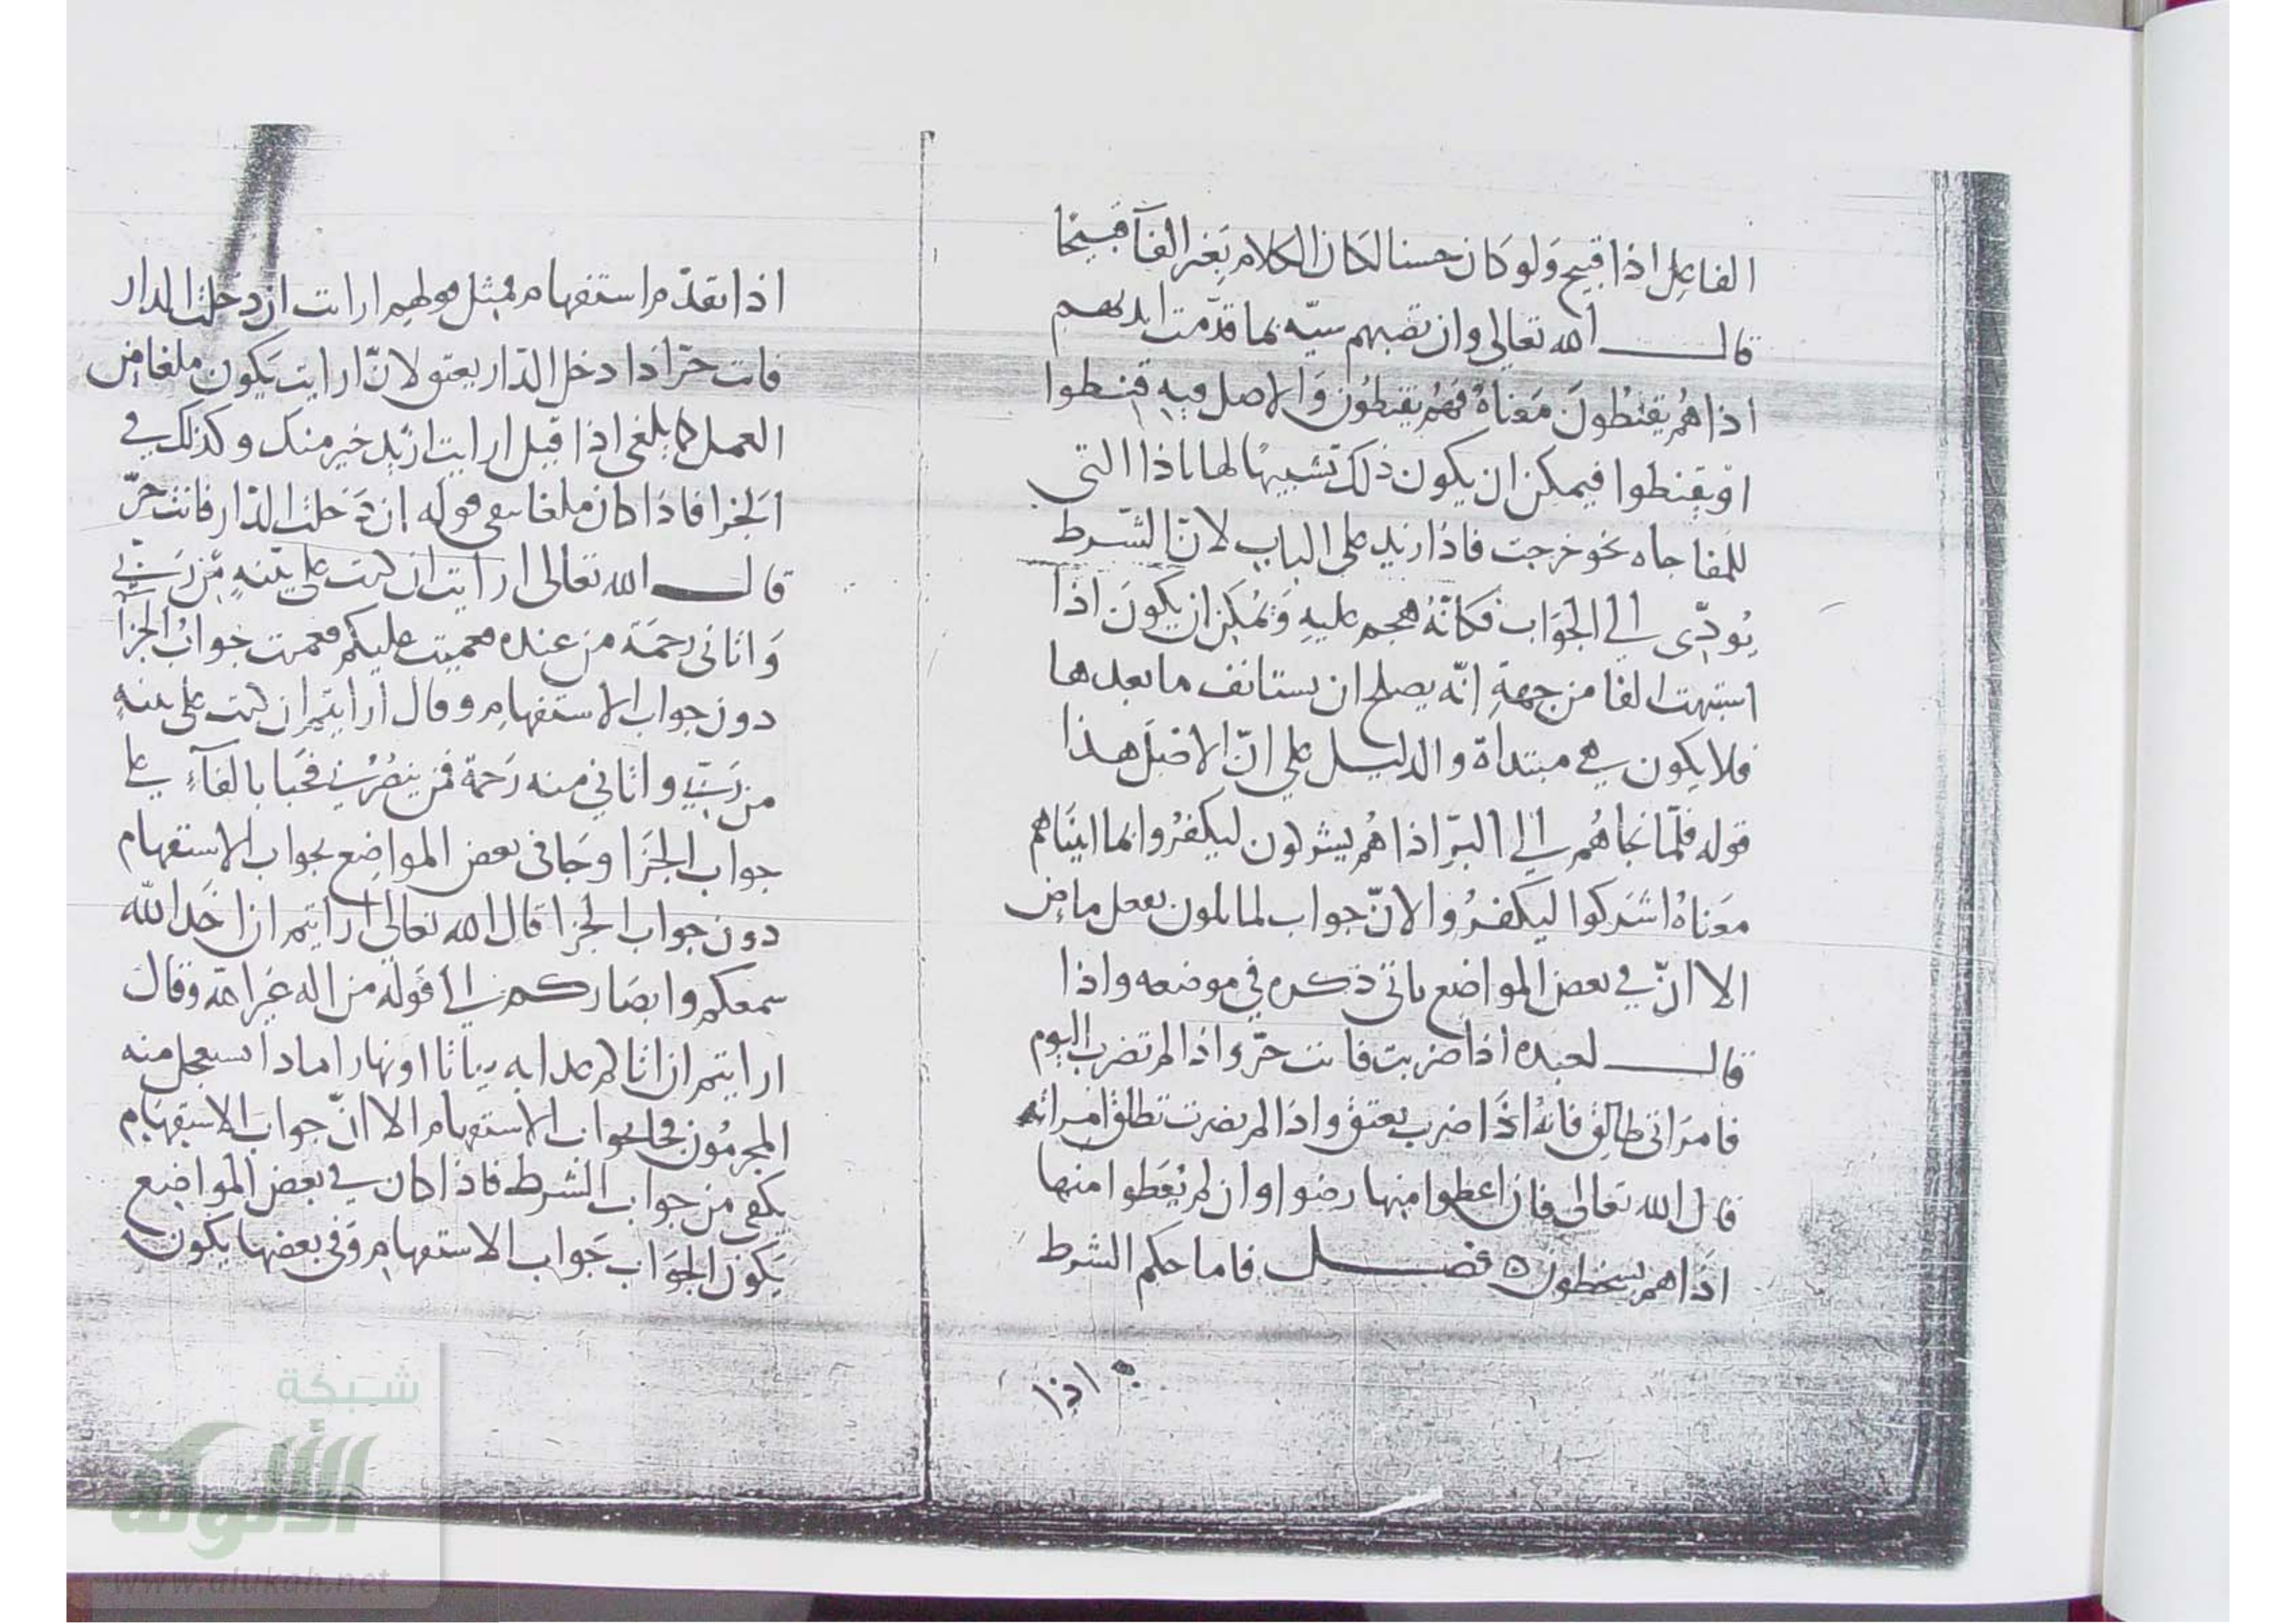 الفاعل اذا قبيح ولو كان حسنا لكان الكلام بغير الفآ قبيحا
قال الله تعالى وان تصبهم سيّه بما قدّمت ايديهم
اذا هُم يقنطُونَ مَعناهُ فهُم يقنطون وَالاصل فيهِ قنطوا
اوْ يقنطوا فيمكن ان يكون ذلك تشبيهًا لها باذا التي
للمفاجاه نحو خرجت فاذا زيد على الباب لانّ الشرط
يُودّى الي الجوَاب فكانّهُ هجم عليهِ وَيُمكن ان يكونَ اذا
اشبهت الفا من جهةِ انّه يصلح ان يستانف ما بعدها
فلا يكون هي مبتداة والدليل على انّ الاصل هذا
قوله فلمّا نجاهُم الي البرّ اذا هُم يشركون ليكفرُوا بما اتيناهم
معَناهُ اشركوا ليكفرُوا لانّ جواب لما يكون بفعل ماض
الا انّ في بعض المواضع ياتي ذكره في موضعه واذا
قال لعبده اذا ضربت فانت حرّ واذا لم تضرب اليوم
فامرَاتى طالق فانهُ اذَا ضرب يعتق واذا لم يضرب تطلق امراته
قال الله تعالى فان اعطوا منها رضوا وان لم يُعَطوا منها
اذَا هم يسخطون ه فصل فاما حكم الشرط
اذا
اذا تقدّم استفهام فمثل قولهم ارايت ان دخلت الدار
فانت حرّ اذا دخل الدّار يعتق لانّ ارايت يكون ملغا من
العمل كما يلغى اذا قيل ارايت ازيد خير منك وكذلك في
الجزا فاذا كان ملغا بقى قوله ان دَخلت الدّار فانت حرّ
قال الله تعالى ارايت ان كنت على بيّنهٍ مّن رَبّي
وَاتانى رحمَة من عنده فعميت عليكم فعميت جوابُ الجزآ
دون جواب الاستفهامِ وقال ارايتم ان كنت على بينهٍ
من رَبّي واتاني منه رَحمة فمن ينصُرُني فجَا بالفآءِ على
جواب الجزَا وجَا في بعض المواضع بجواب الاستفهام
دون جواب الجزا قال الله تعالى ارايتم ان اخَذ اللّه
سمعكم وابصَاركم الي قوله من اله غير الله وقال
ارايتم ان اتاكم عذابه بياتا او نهارا ماذا يستعجل منه
المجرمُون فجا بجواب الاستفهام الا انّ جوابَ الاستفهام
يكفي من جواب الشرط فاذا كان في بعض المواضع
يَكون الجوَاب جَواب الاستفهامِ وَفي بعضها يكون
شبكة
الألوكة
www.alukah.net